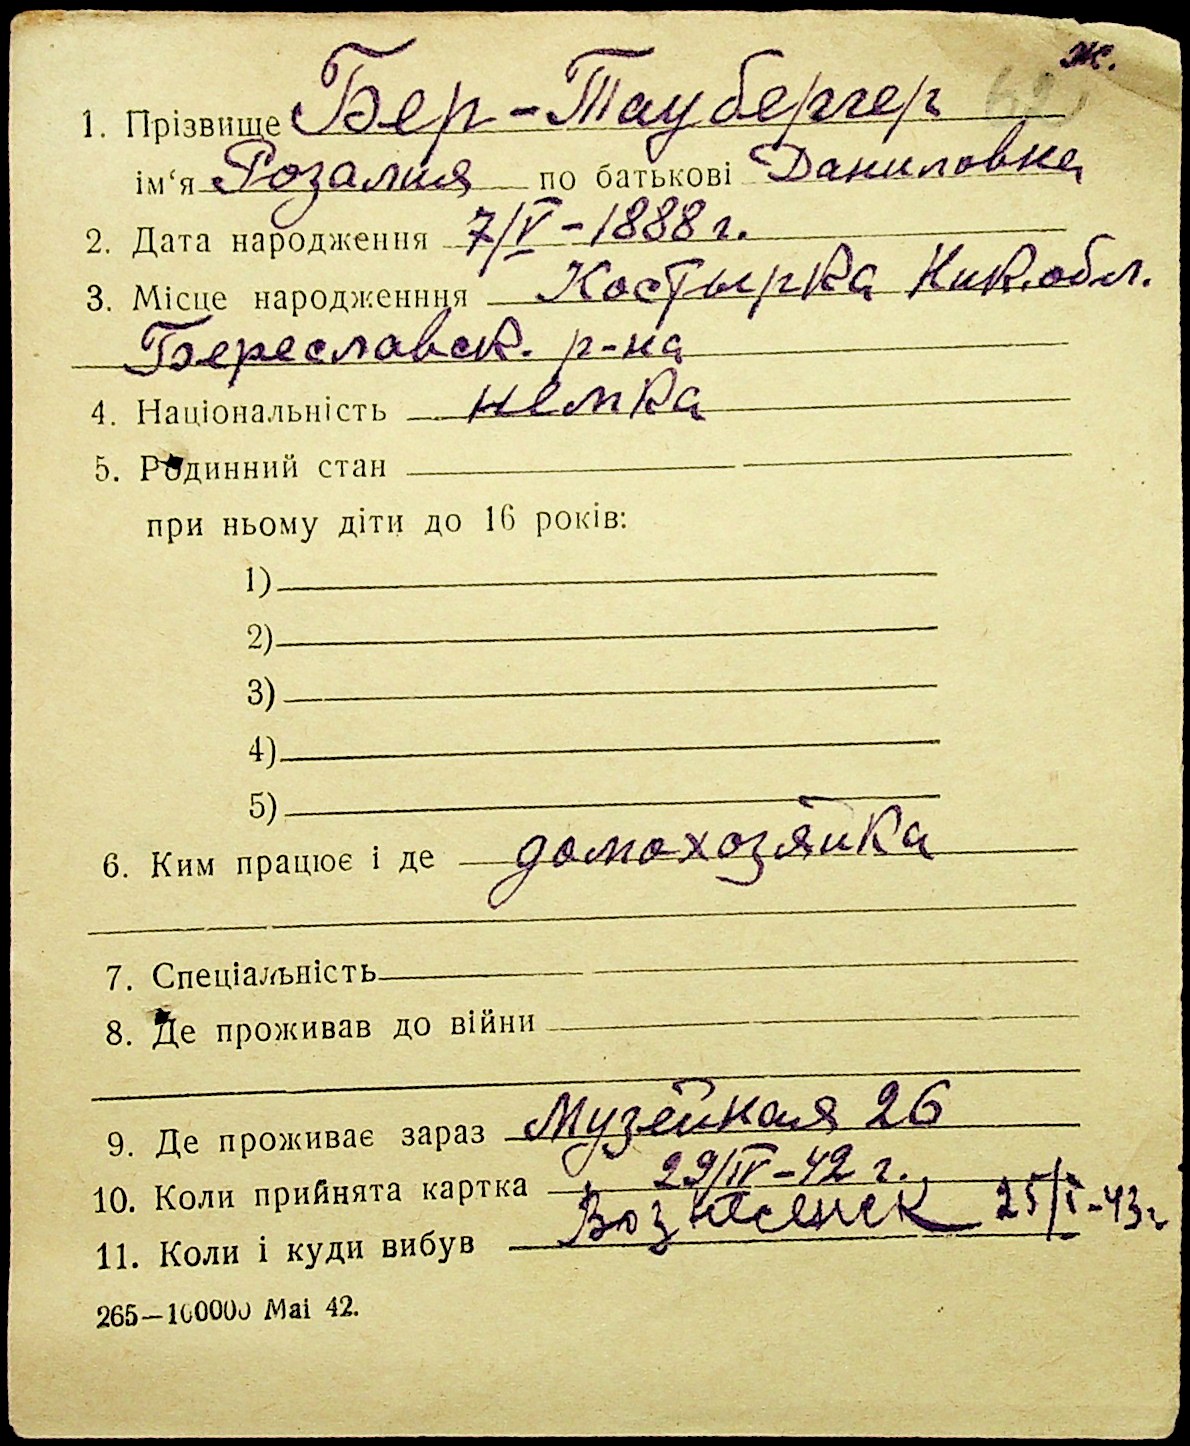 ж.
1. Прізвище Бер-Таубергер
ім'я Розалия по батькові Даниловна
2. Дата народження 7/V-1888 г.
3. Місце народженння Костырка Ник. обл.
Береславск. р-на
4. Національність немка
5. Родинний стан
при ньому діти до 16 років:
1)
2)
3)
4)
5)
6. Ким працює і де домохозяйка
7. Спеціальність
8. Де проживав до війни
9. Де проживає зараз Музейная 26
10. Коли прийнята картка 29/IV-42 г.
11. Коли і куди вибув Вознесенск 25/I-43 г
265—100000 Маі 42.